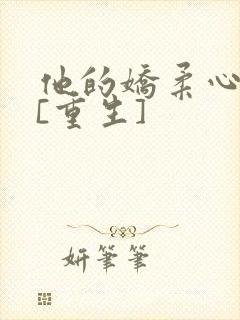 他的嬌柔心
[重生]
妍筆筆